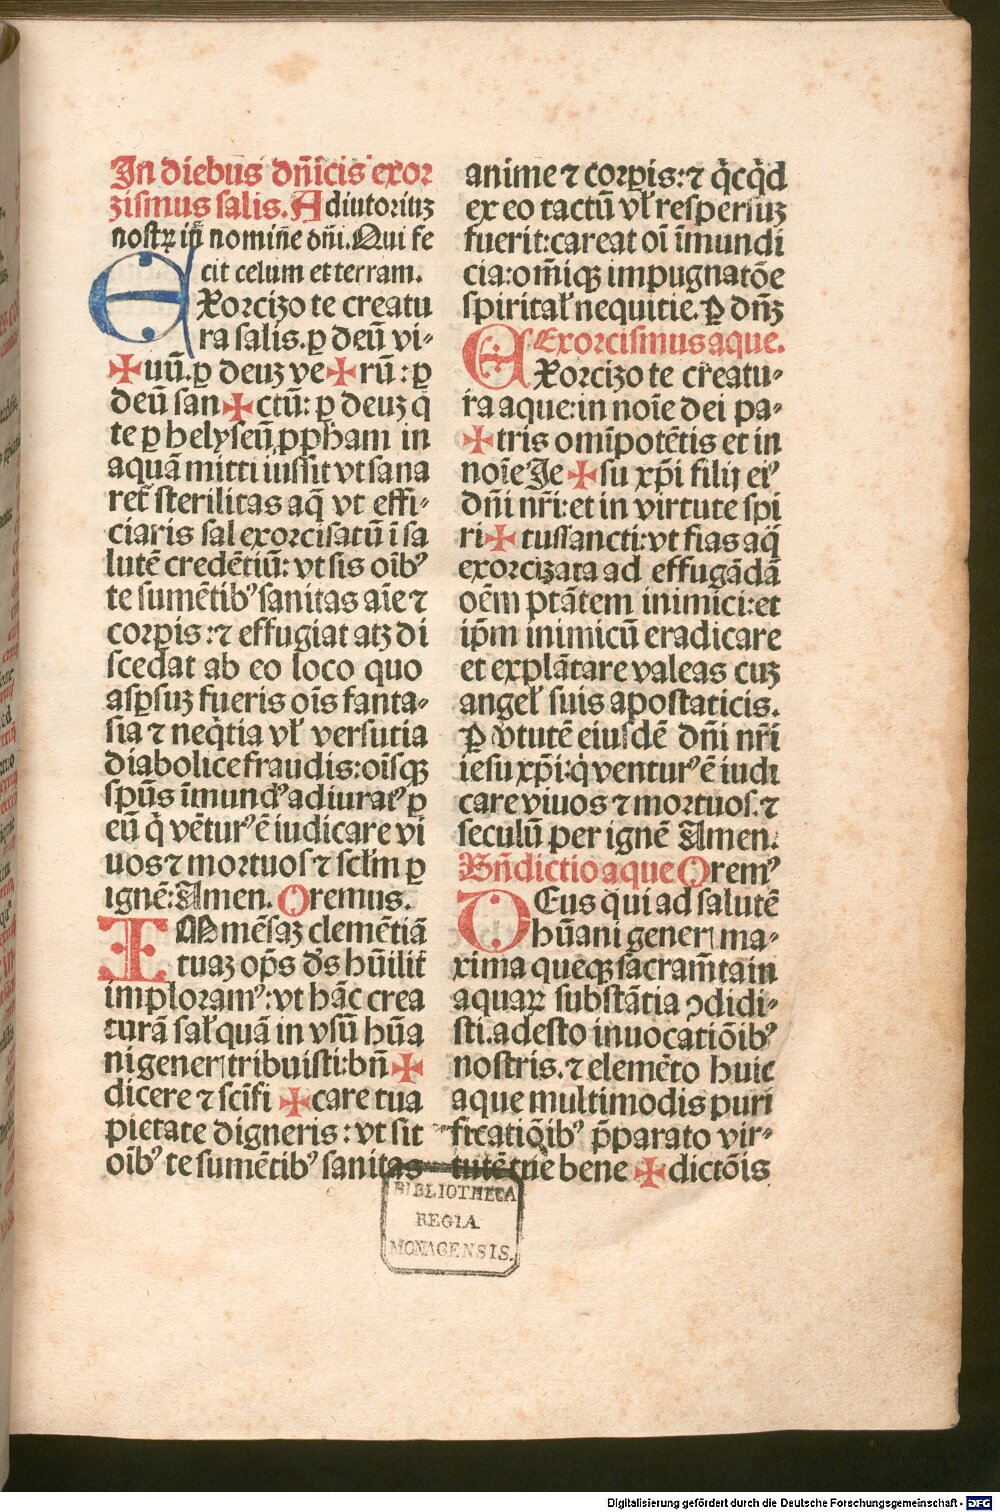 In diebus dn̄icis exor
zismus salis. Adiutoriuꝫ
nostꝝ in nomīe dn̄i. Qui fe
cit celum et terram.
EXorcizo te creatu
ra salis. ꝑ deū vi-
✠uū. ꝑ deuꝫ ve✠rū: ꝑ
deū san✠ctū: ꝑ deuꝫ q̇
te ꝑ helyseū ꝓpham in
aquā mitti iussit vt sana
ret᷑ sterilitas aq̄ vt effi-
ciaris sal exorcisatū ī sa
lutē credētiū: vt sis oīb⁹
te sumētib⁹ sanitas aīe ⁊
corꝑis: ⁊ effugiat atꝫ di
scedat ab eo loco quo
asꝑsuꝫ fueris oīs fanta-
sia ⁊ neq̇tia vł versutia
diabolice fraudis: oīsqꝫ
spūs īmund⁹ adiurat⁹ ꝑ
eū q̇ vētur⁹ ē iudicare vi
uos ⁊ mortuos ⁊ sclm̄ ꝑ
ignē: Amen. Oremus.
IMmēsaꝫ clemētiā
tuaꝫ op̄s ds̄ hūilit᷑
imploram⁹: vt hāc crea
turā sał quā in vsū hūa
ni generꝭ tribuisti: bn̄✠
dicere ⁊ scīfi ✠care tua
pietate digneris: vt sit
oīb⁹ te sumētib⁹ sanitas
anime ⁊ corꝑis: ⁊ q̇cq̇d
ex eo tactū vł respersuꝫ
fuerit: careat oī īmundi
cia: om̄iqꝫ impugnatōe
spiritał nequitie. Ꝑ dn̄ꝫ
Exorcismus aque.
EXorcizo te creatu-
ra aque: in noīe dei pa-
✠tris omīpotētis et in
noīe Je ✠su xp̄i filij ei⁹
dn̄i nr̄i: et in virtute spi
ri✠tussancti: vt fias aq̄
exorcizata ad effugādā
oēm ptātem inimici: et
ip̄m inimicū eradicare
et explātare valeas cuꝫ
angeł suis apostaticis.
Ꝑ v̇tutē eiusdē dn̄i nr̄i
iesu xp̄i: q̇ ventur⁹ ē iudi
care viuos ⁊ mortuos. ⁊
seculū per ignē Amen.
Bn̄dictio aque Orem⁹
DEus qui ad salutē
hūani generꝭ ma-
xima queqꝫ sacram̄ta in
aquaꝝ substātia ꝯdidi-
sti. adesto inuocatiōib⁹
nostris. ⁊ elemēto huic
aque multimodis puri
ficatiōib⁹ p̄parato vir-
tutē tue bene ✠dictōis
BIBLIOTHECA
REGIA
MONACENSIS.
Digitalisierung gefördert durch die Deutsche Forschungsgemeinschaft - DFG